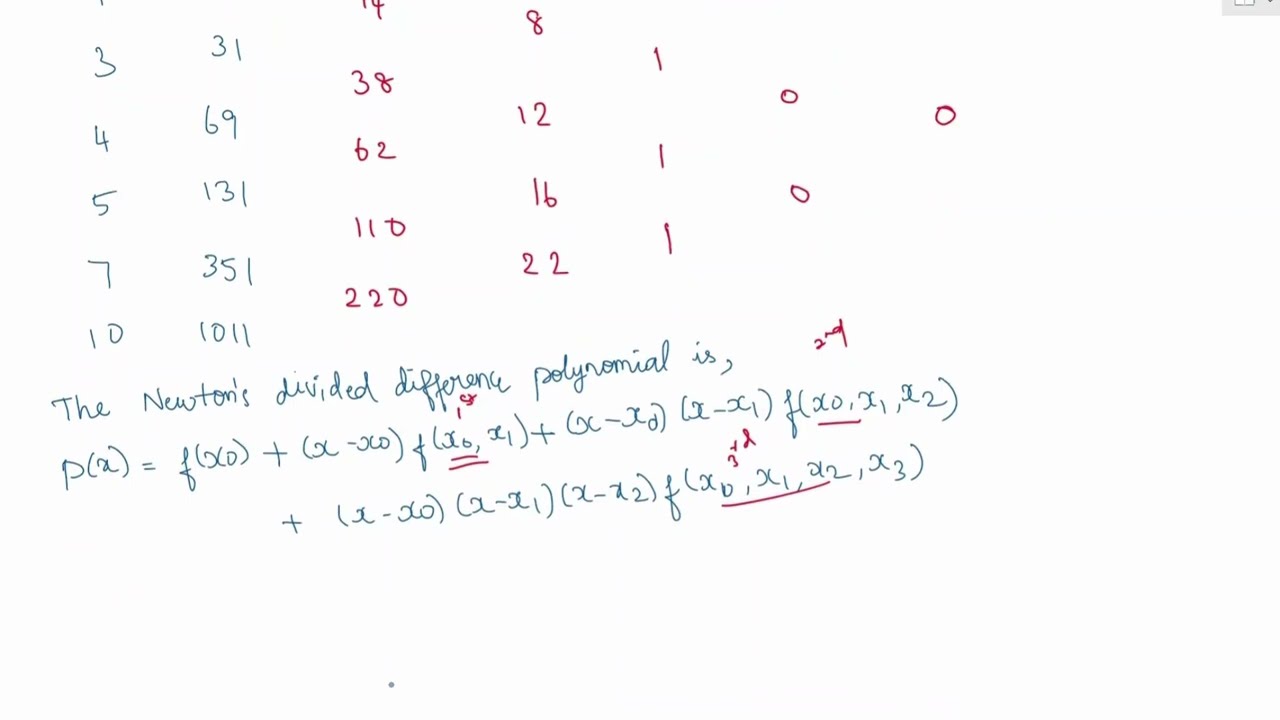 14
8
3 31
1
38
0
4 69 12 0
62
1
5 131 16 0
110
1
7 351 22
220
10 1011
2nd
The Newton's divided difference polynomial is,
1st
p(x) = f(x0) + (x-x0) f(x0, x1) + (x-x0) (x-x1) f(x0, x1, x2)
3rd
+ (x-x0) (x-x1) (x-x2) f(x0, x1, x2, x3)